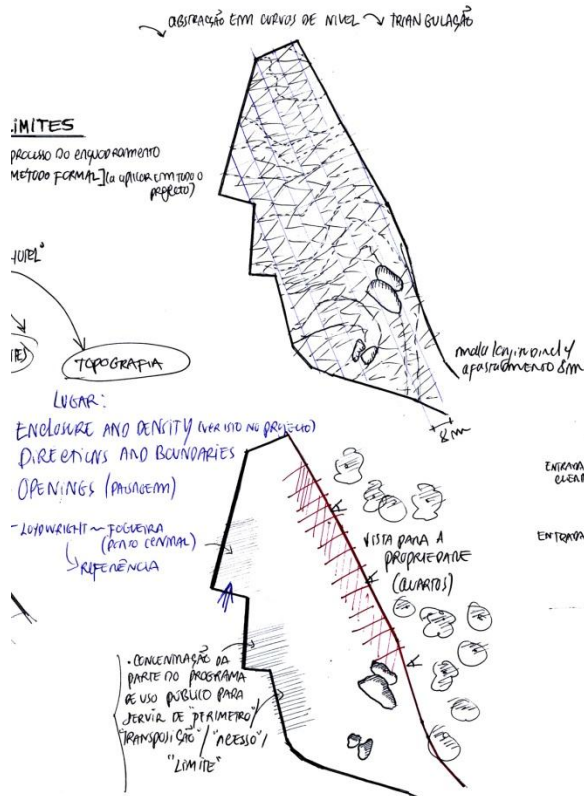 ABSTRAÇÃO EM CURVOS DE NIVEL ~ TRIANGULAÇÃO
LIMITES
PROCESSO DO ENQUADRAMENTO
METODO FORMAL] (a aplicar em todo o
projeto)
HOTEL"
TOPOGRAFIA
malla longitudinal y
afastamento 8m
8 m
LUGAR:
ENCLOSURE AND DENSITY (VER ISTO NO PROJECTO)
DIRECTIONS AND BOUNDARIES
OPENINGS (PAISAGEM)
- LOYDWRIGHT ~ FOGUEIRA
(PONTO CENTRAL)
REFERÊNCIA
ENTRADA
ENTRADA
VISTA PARA A
PROPRIEDADE
(QUARTOS)
• CONCENTRAÇÃO DA
PARTE DO PROGRAMA
DE USO PÚBLICO PARA
SERVIR DE "PERIMETRO"/
"TRANSPOSIÇÃO"/"ACESSO"/
"LIMITE"